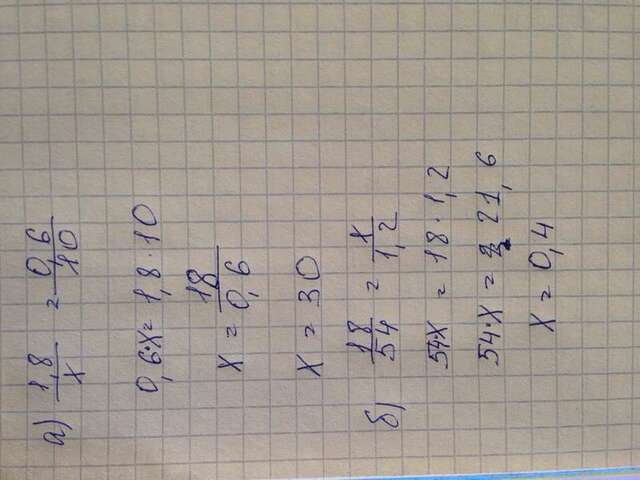 а) 1,8/x = 0,6/10
0,6·x = 1,8·10
x = 18/0,6
x = 30
б) 18/54 = x/1,2
54·x = 18·1,2
54·x = 21,6
x = 0,4